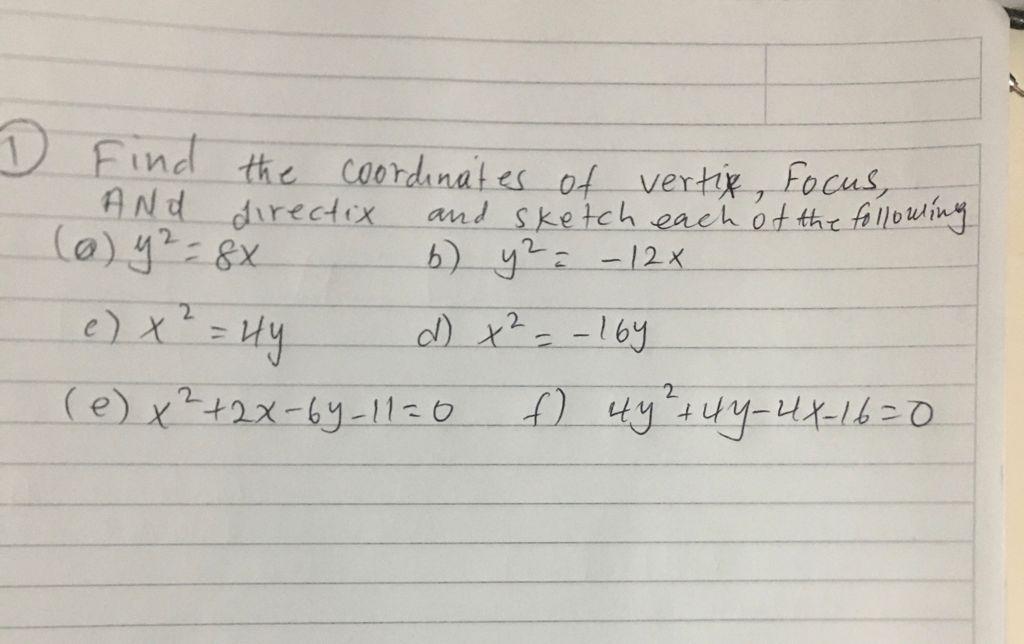 ① Find the coordinates of vertix, Focus,
ANd directix and sketch each of the following
(a) y² = 8x b) y² = -12x
c) x² = 4y d) x² = -16y
(e) x²+2x-6y-11=0 f) 4y²+4y-4x-16=0